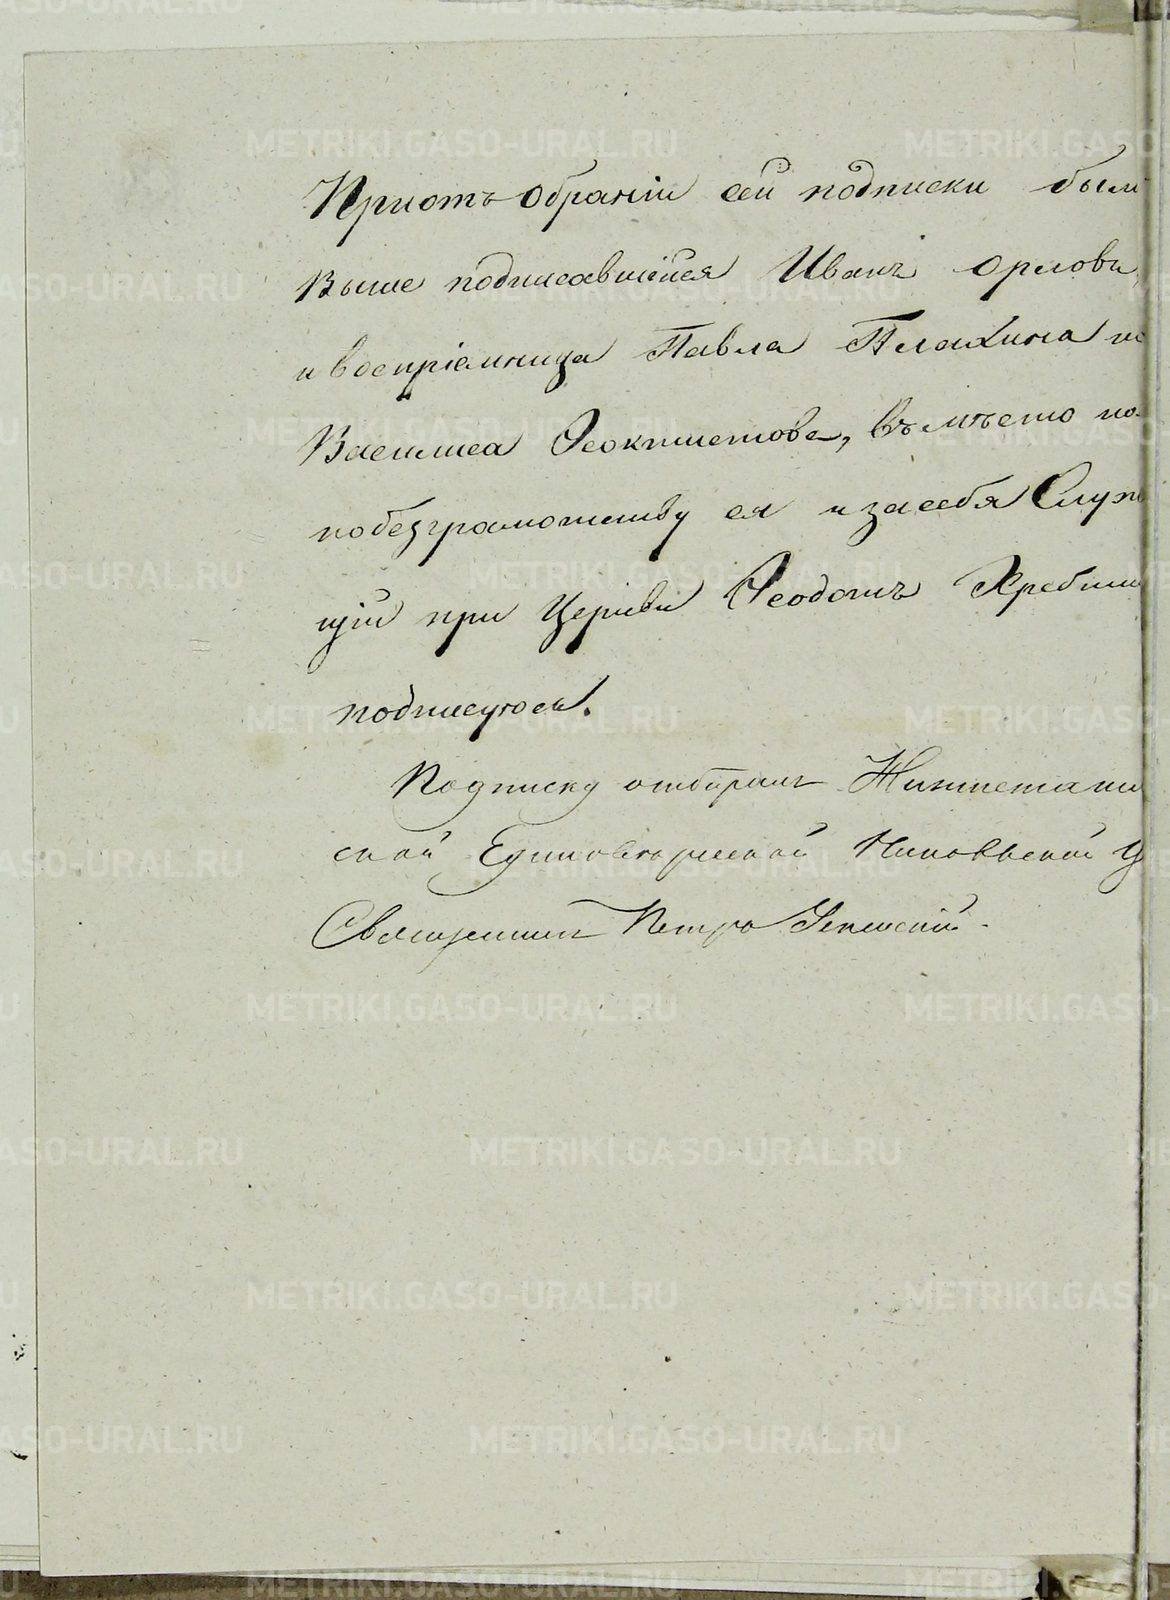 Приотъ обраніи сей подписки были
Выше подписавшійся Иванъ Орловъ,
и воспріемница Павла Плохина
Василиса Феоктистова, въместо
побезграмотству ея и засебя Служ
щій при Церкви Феодотъ Хребти
подписуюсь.
Подписку отбиралъ Нижнетагил
ской Единоверческой Никольской Ц
Священникъ Петръ
METRIKI.GASO-URAL.RU